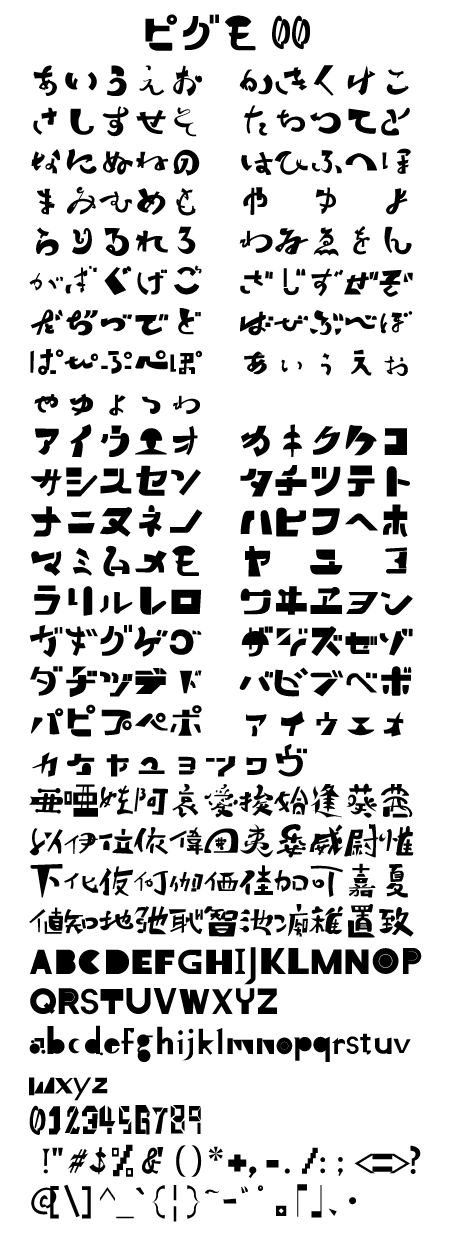 ピグモ 00
あいうえお かきくけこ
さしすせそ たちつてと
なにぬねの はひふへほ
まみむめも や ゆ よ
らりるれろ わゐゑをん
がぎぐげご ざじずぜぞ
だぢづでど ばびぶべぼ
ぱぴぷぺぽ ぁぃぅぇぉ
ゃゅょっゎ
アイウエオ カキクケコ
サシスセソ タチツテト
ナニヌネノ ハヒフヘホ
マミムメモ ヤ ユ ヨ
ラリルレロ ワヰヱヲン
ガギグゲゴ ザジズゼゾ
ダヂヅデド バビブベボ
パピプペポ ァィゥェォ
ヵヶャュョッヮヴ
亜唖娃阿哀愛挨姶逢葵茜
以伊位依偉囲夷委威尉惟
下化仮何伽価佳加可嘉夏
値知地弛恥智池痴稚置致
ABCDEFGHIJKLMNOP
QRSTUVWXYZ
abcdefghijklmnopqrstuv
wxyz
0123456789
!"#$%&()*+,-./:;<=>?
@[\]^_`{¦}~-゛゜。「」、・